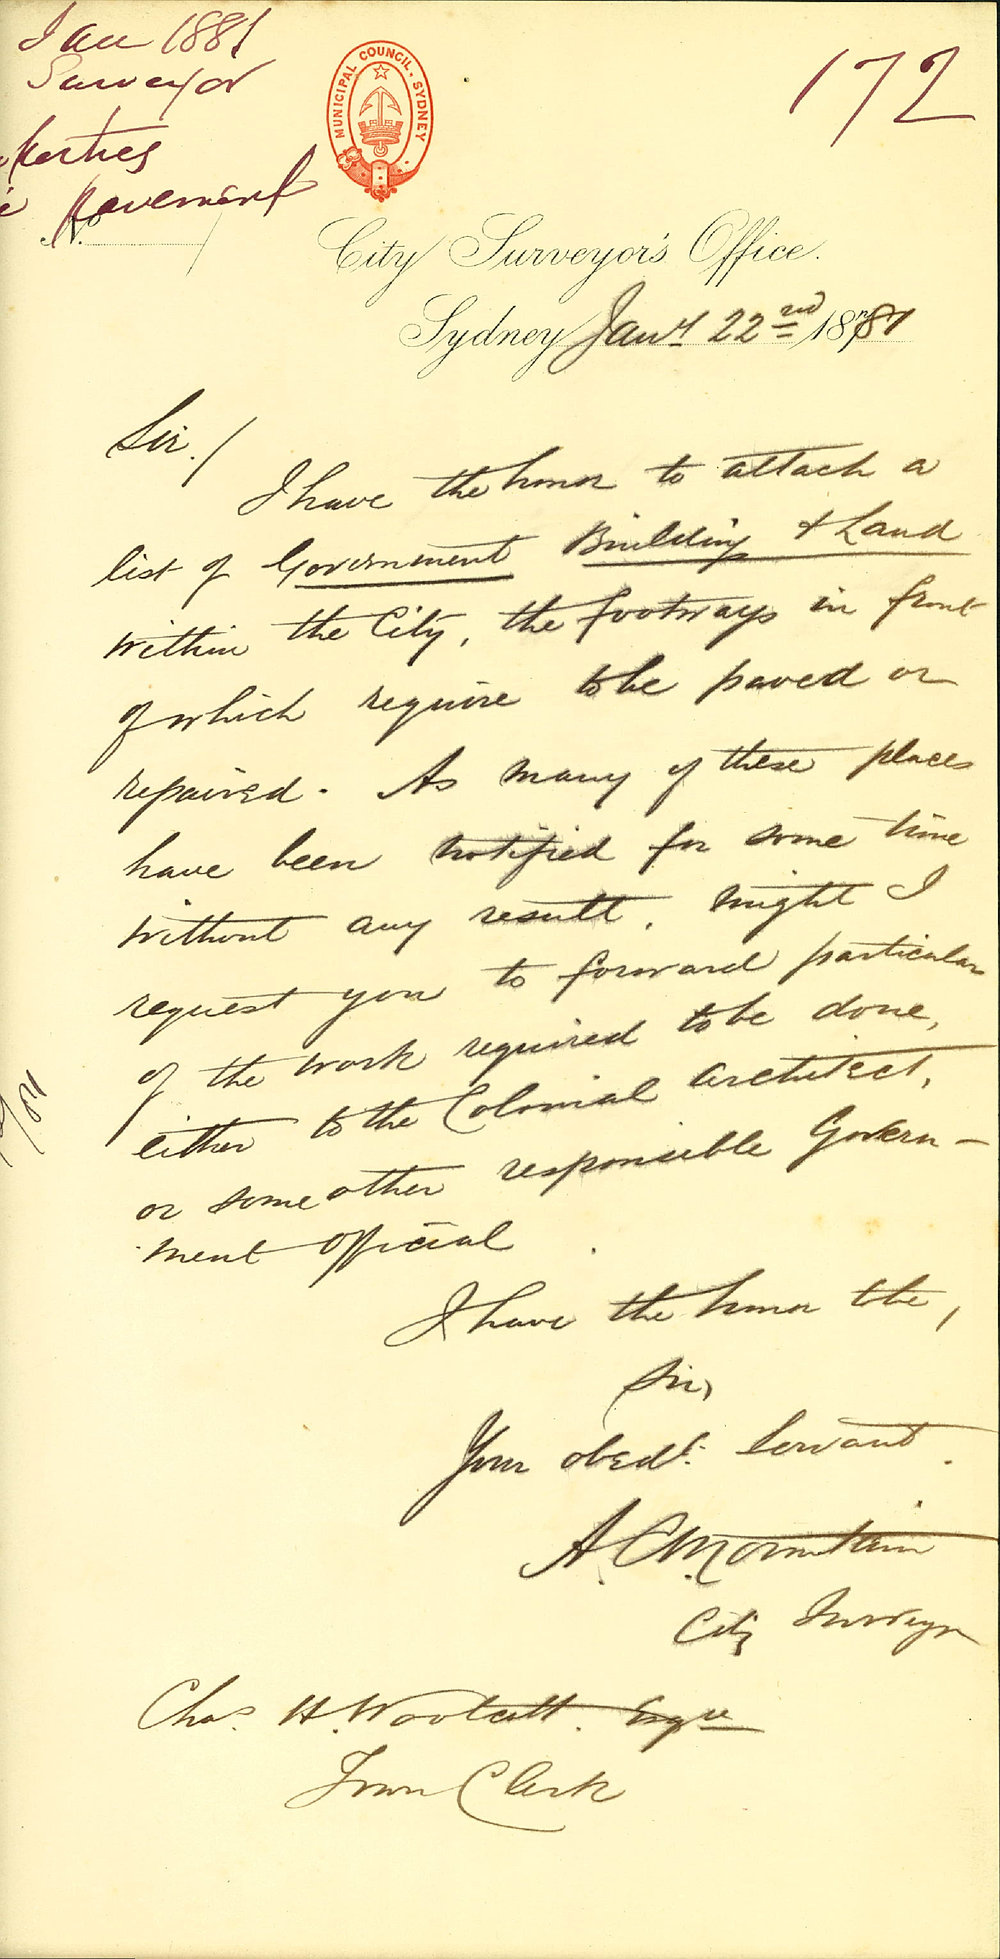 Jan 1881
Surveyor
Pavement
172
MUNICIPAL COUNCIL. SYDNEY
No
City Surveyor's Office.
Sydney Jany 22nd 1881
Sir./
I have the honor to attach a
list of Government Building & Land
within the City, the footways in front
of which require to be paved or
repaired. As many of these places
have been notified for some time
without any result, might I
request you to forward particular
of the work required to be done,
either to the Colonial Architect,
or some other responsible Govern-
ment Official
I have the honor to be,
Sir,
Your obedt. Servant.
A.C. Mountain
City Surveyor
Chas. H. Woolcott. Esqre
Town Clerk